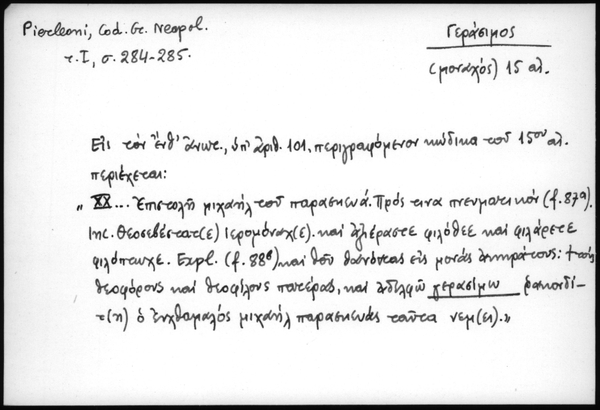 Pierleoni, Cod. Gr. Neapol.
τ. I, σ. 284-285.
Γεράσιμος
(μοναχός) 15 αἰ.
Εἰς τὸν ἔνθ' ἀνωτ., ὑπ' ἀριθ. 101, περιγραφόμενον κώδικα τοῦ 15ου αἰ.
περιέχεται:
„ XX... Ἐπιστολὴ μιχαὴλ τοῦ παρασκευᾶ. Πρός τινα πνευματικόν (f. 87α).
Inc. Θεοσεβέστατ(ε) Ἱερομόναχ(ε). καὶ φιλόθεε καὶ φιλάρετε
φιλόπτωχε. Expl. (f. 88β) καὶ θεῦ εἰς μονὰς ἀκηράτους: τοὺς
θεοφόρους καὶ θεοφίλους πατέρας, καὶ ἀδελφῶ γερασίμω
τ(η) ὁ μιχαὴλ παρασκευᾶς ταῦτα νεμ(ει).»